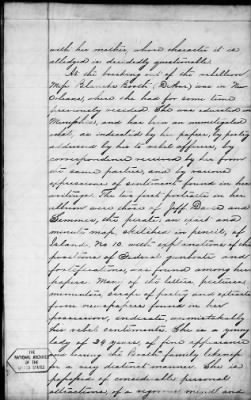 with her mother, whose character it is
alleged is decidedly questionable.
At the breaking out of the rebellion
Miss Blanche Booth, (DeBar) was in New
Orleans, where she had for some time
previously resided. She was educated in
Memphis, and has been an unmitigated
rebel, as indicated by her papers, by poetry
addressed by her to rebel officers, by
correspondence received by her from
the same parties, and by various
expressions of sentiment found in her
writings. The two first portraits in her
album were those of Jeff Davis and
Semmes, the pirate, an exact and
minute map, sketched in pencil, of
Island, No. 10, with explanations of the
positions of Federal gunboats and
fortifications, was found among her
papers. Many of the letters, pictures,
mementoes, scraps of poetry and extracts
from newspapers found in her
possession, indicate, unmistakably
her rebel sentiments. She is a young
lady of 24 years, of fine appearance
and bearing the Booth family likeness
in a very distinct manner. She is
possessed of considerable personal
attractions, of a vigorous mind and
THE
NATIONAL ARCHIVES
OF THE
UNITED STATES